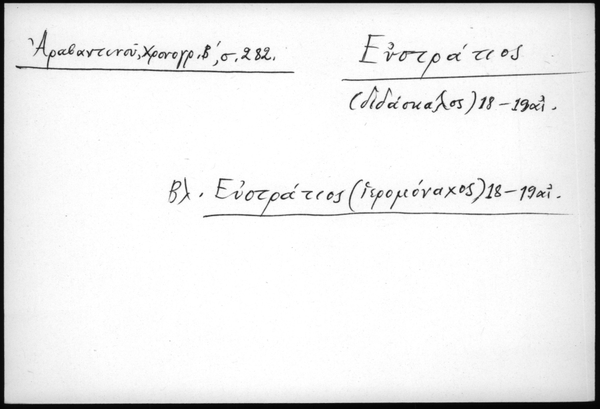 Ἀραβαντινοῦ, Χρονογρ. Β΄, σ. 282.
Εὐστράτιος
(διδάσκαλος) 18-19 αἰ.
Βλ. Εὐστράτιος (ἱερομόναχος) 18-19 αἰ.